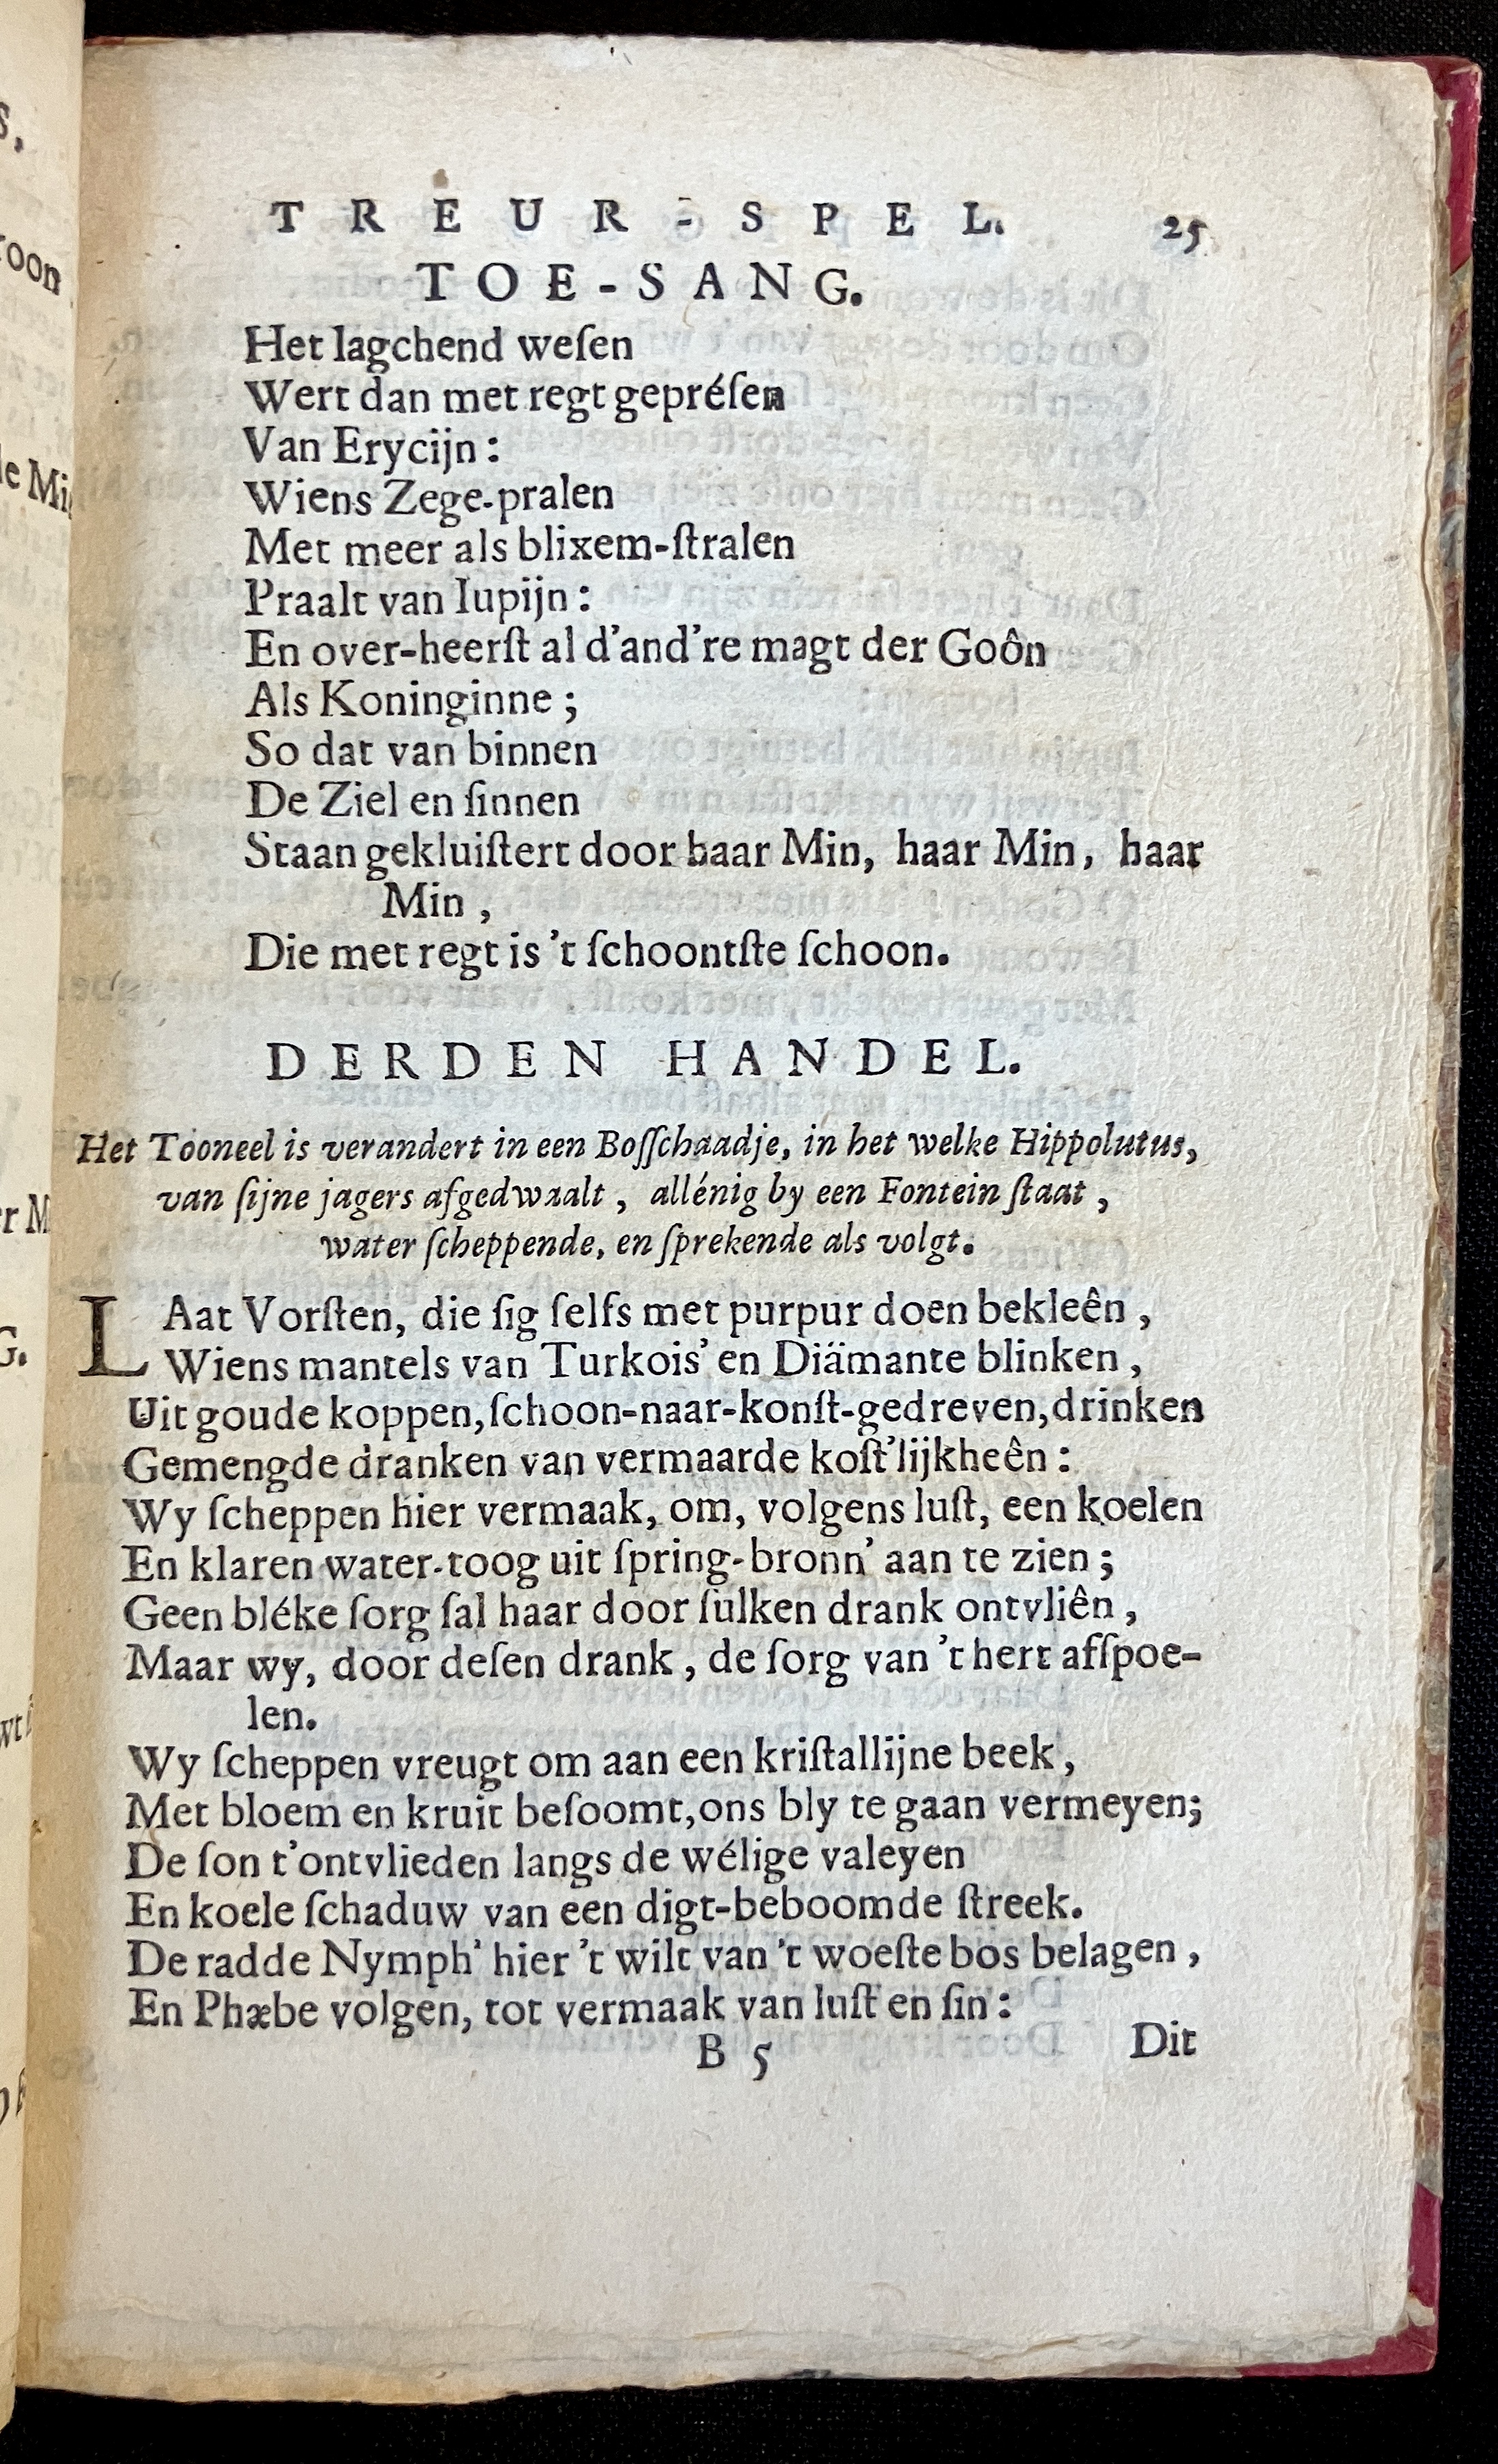 TREUR-SPEL. 25
TOE-SANG.
Het lagchend weſen
Wert dan met regt gepréſen
Van Erycijn:
Wiens Zege-pralen
Met meer als blixem-ſtralen
Praalt van Iupijn:
En over-heerſt al d'and're magt der Goôn
Als Koninginne;
So dat van binnen
De Ziel en ſinnen
Staan gekluiſtert door haar Min, haar Min, haar
Min,
Die met regt is 't ſchoontſte ſchoon.
DERDEN HANDEL.
Het Tooneel is verandert in een Boſſchaadje, in het welke Hippolutus,
van ſijne jagers afgedwaalt, allénig by een Fontein ſtaat,
water ſcheppende, en ſprekende als volgt.
LAat Vorſten, die ſig ſelfs met purpur doen bekleên,
Wiens mantels van Turkois' en Diämante blinken,
Uit goude koppen, ſchoon-naar-konſt-gedreven, drinken
Gemengde dranken van vermaarde koſt'lijkheên:
Wy ſcheppen hier vermaak, om, volgens luſt, een koelen
En klaren water-toog uit ſpring-bronn' aan te zien;
Geen bléke ſorg ſal haar door ſulken drank ontvliên,
Maar wy, door deſen drank, de ſorg van 't hert afſpoe-
len.
Wy ſcheppen vreugt om aan een kriſtallijne beek,
Met bloem en kruit beſoomt, ons bly te gaan vermeyen;
De ſon t'ontvlieden langs de wélige valeyen
En koele ſchaduw van een digt-beboomde ſtreek.
De radde Nymph' hier 't wilt van 't woeſte bos belagen,
En Phæbe volgen, tot vermaak van luſt en ſin:
B 5 Dit